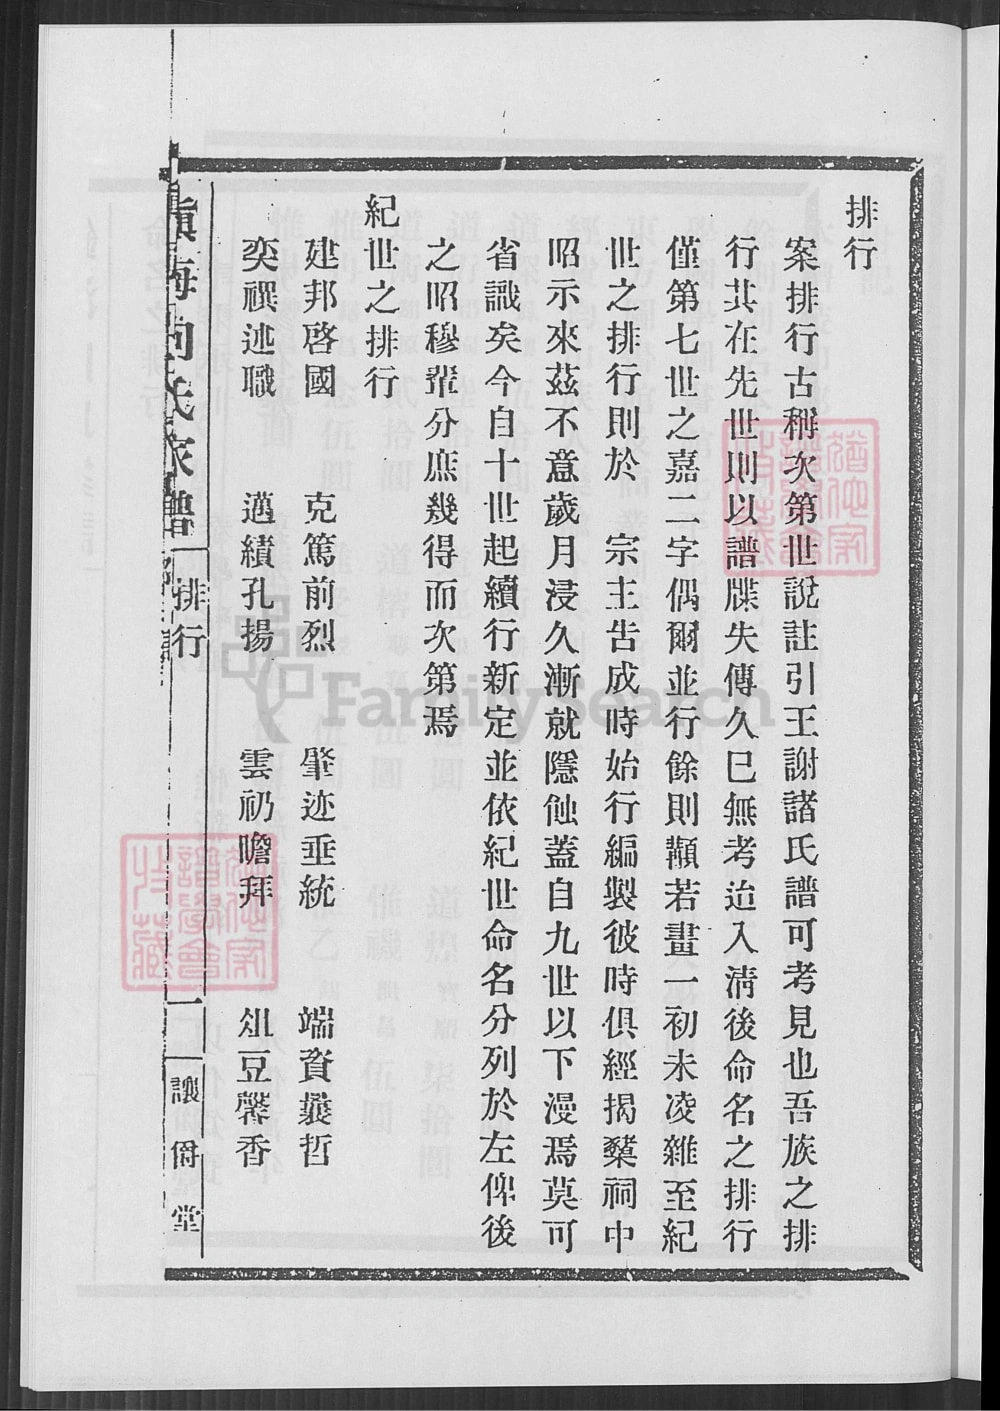 排行
案排行古稱次第世說註引王謝諸氏譜可考見也吾族之排
行其在先世則以譜牒失傳久已無考迨入淸後命名之排行
僅第七世之嘉二字偶爾並行餘則顯若畫一初未凌雜至紀
世之排行則於 宗主告成時始行編製彼時俱經揭櫫祠中
昭示來茲不意歲月浸久漸就隱蝕蓋自九世以下漫焉莫可
省識矣今自十世起續行新定並依紀世命名分列於左俾後
之昭穆輩分庶幾得而次第焉
紀世之排行
建邦啓國 克篤前烈 肇迹垂統 端資羲哲
奕禩述職 邁績孔揚 雲礽瞻拜 俎豆馨香
鎭海向氏家譜 排行 一 讓爵堂
猶他家譜學會特藏
猶他家譜學會特藏
FamilySearch